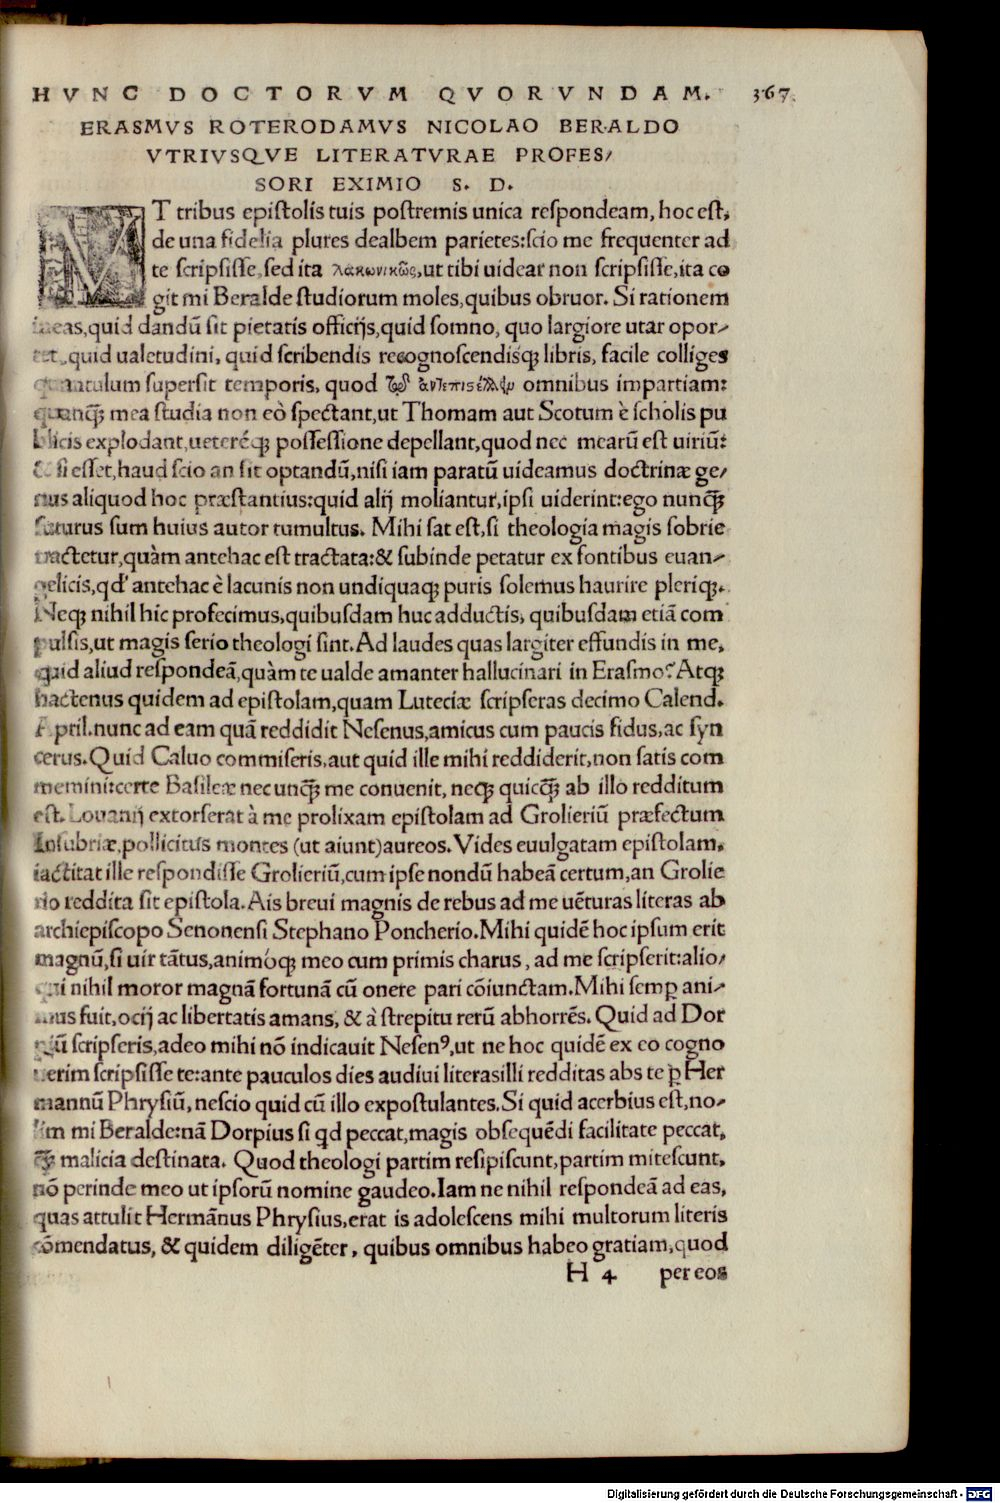 HVNC DOCTORVM QVORVNDAM. 367
ERASMVS ROTERODAMVS NICOLAO BERALDO
VTRIVSQVE LITERATVRAE PROFES/
SORI EXIMIO S. D.
T tribus epistolis tuis postremis unica respondeam, hoc est,
de una fidelia plures dealbem parietes: scio me frequenter ad
te scripsisse, sed ita λακωνικῶς, ut tibi uidear non scripsisse, ita co
git mi Beralde studiorum moles, quibus obruor. Si rationem
ineas, quid dandũ sit pietatis officijs, quid somno, quo largiore utar opor/
tet, quid ualetudini, quid scribendis recognoscendisq; libris, facile colliges
quantulum supersit temporis, quod omnibus impartiam:
quanq̃; mea studia non eò spectant, ut Thomam aut Scotum è scholis pu
blicis explodant, ueteréq; possessione depellant, quod nec mearũ est uiriũ:
& si esset, haud scio an sit optandũ, nisi iam paratũ uideamus doctrinæ ge/
nus aliquod hoc præstantius: quid alij moliantur, ipsi uiderint: ego nunq̃;
futurus sum huius autor tumultus. Mihi sat est, si theologia magis sobrie
tractetur, quàm antehac est tractata: & subinde petatur ex fontibus euan/
gelicis, qd' antehac è lacunis non undiquaq; puris solemus haurire pleriq;.
Neq; nihil hic profecimus, quibusdam huc adductis, quibusdam etiã com
pulsis, ut magis serio theologi sint. Ad laudes quas largiter effundis in me,
quid aliud respondeã, quàm te ualde amanter hallucinari in Erasmo? Atq;
hactenus quidem ad epistolam, quam Luteciæ scripseras decimo Calend.
April. nunc ad eam quã reddidit Nesenus, amicus cum paucis fidus, ac syn
cerus. Quid Caluo commiseris, aut quid ille mihi reddiderit, non satis com
memini: certe Basileæ nec unq̃; me conuenit, neq; quicq̃; ab illo redditum
est. Louanij extorserat à me prolixam epistolam ad Grolieriũ præfectum
Insubriæ, pollicitus montes (ut aiunt) aureos. Vides euulgatam epistolam,
iactitat ille respondisse Grolieriũ, cum ipse nondũ habeã certum, an Grolie
rio reddita sit epistola. Ais breui magnis de rebus ad me uẽturas literas ab
archiepiscopo Senonensi Stephano Poncherio. Mihi quidẽ hoc ipsum erit
magnũ, si uir tãtus, animóq; meo cum primis charus, ad me scripserit: alio/
qui nihil moror magnã fortunã cũ onere pari cõiunctam. Mihi semꝑ ani/
mus fuit, ocij ac libertatis amans, & à strepitu rerũ abhorrẽs. Quid ad Dor
piũ scripseris, adeo mihi nõ indicauit Nesenꝰ, ut ne hoc quidẽ ex eo cogno
uerim scripsisse te: ante pauculos dies audiui literas illi redditas abs te ꝑ Her
mannũ Phrysiũ, nescio quid cũ illo expostulantes. Si quid acerbius est, no/
lim mi Beralde: nã Dorpius si qd peccat, magis obsequẽdi facilitate peccat,
q̃; malicia destinata. Quod theologi partim resipiscunt, partim mitescunt,
nõ perinde meo ut ipsorũ nomine gaudeo. Iam ne nihil respondeã ad eas,
quas attulit Hermãnus Phrysius, erat is adolescens mihi multorum literis
cõmendatus, & quidem diligẽter, quibus omnibus habeo gratiam, quod
H 4 per eos
Digitalisierung gefördert durch die Deutsche Forschungsgemeinschaft - DFG